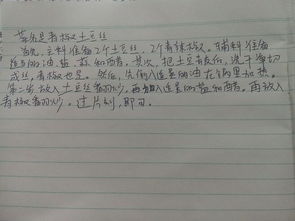 菜名是青椒土豆丝
首先,主料准备2个土豆丝,2个青辣椒,辅料准备
适量的油,盐,蒜和酒香。其次,把土豆去皮后,洗干净切
成丝,青椒也是。然后,先倒入适量的油在锅里加热。
第二步放入土豆丝翻炒,再加入适量的盐和酒香,再放入
青椒翻炒,过片刻,即可。